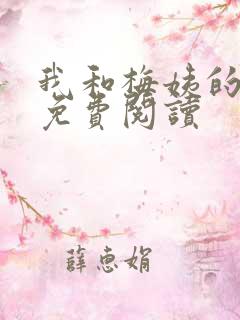 我和梅姨的
免費閱讀
薛惠娟